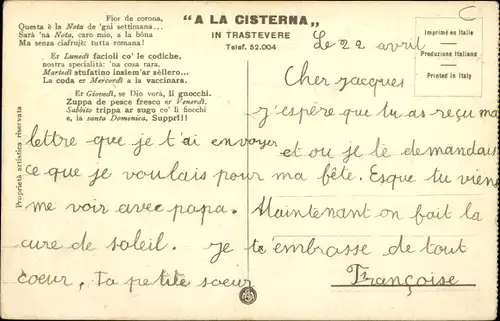 Fior de corona,
Questa è la Nota de 'gni settimana...
Sarà 'na Nota, caro mio, a la bôna
Ma senza ciafrujè: tutta romana!
Er Lunedì facioli co' le codiche,
nostra specialità: 'na cosa rara.
Martedì stufatino insiem'ar sèllero...
La coda er Mercordì a la vaccinara.
Er Giovedì, se Dio vorà, li gnocchi.
Zuppa de pesce fresco er Venerdì,
Sabbito trippa ar sugo co' li fiocchi
e, la santa Domenica, Supprì!!!
Proprietà artistica riservata
"A LA CISTERNA„
IN TRASTEVERE
Telef. 52.004
Imprimé en Italie
Produzione Italiana
Printed in Italy
Le 22 avril
Cher Jacques
j'espère que tu as reçu ma
lettre que je t'ai envoyer et ou je te demandais
ce que je voulais pour ma fête. Esque tu viens
me voir avec papa. Maintenant on fait la
cure de soleil. je t'embrasse de tout
coeur, ta petite soeur
Françoise